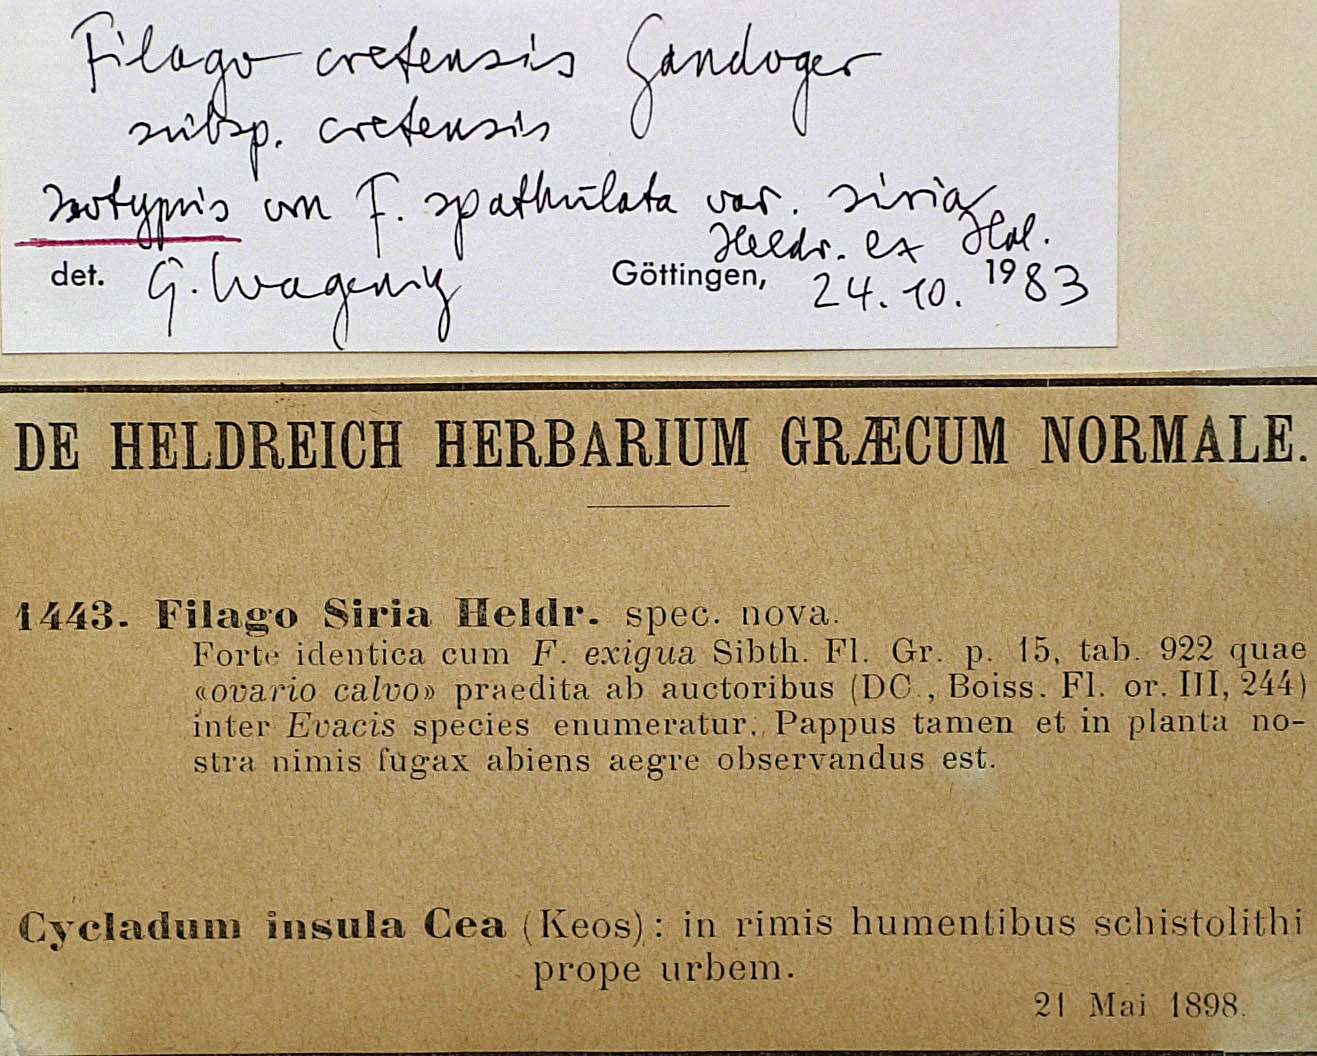 Filago cretensis Gandoger
subsp. cretensis
Isotypus von F. spathulata var. siria
Heldr. ex Hal.
det. G. Wagenitz Göttingen, 24.10. 1983
DE HELDREICH HERBARIUM GRÆCUM NORMALE.
1443. Filago Siria Heldr. spec. nova.
Forte identica cum F. exigua Sibth. Fl. Gr. p. 15, tab. 922 quae
«ovario calvo» praedita ab auctoribus (DC., Boiss. Fl. or. III, 244)
inter Evacis species enumeratur. Pappus tamen et in planta no-
stra nimis fugax abiens aegre observandus est.
Cycladum insula Cea (Keos): in rimis humentibus schistolithi
prope urbem.
21 Mai 1898.